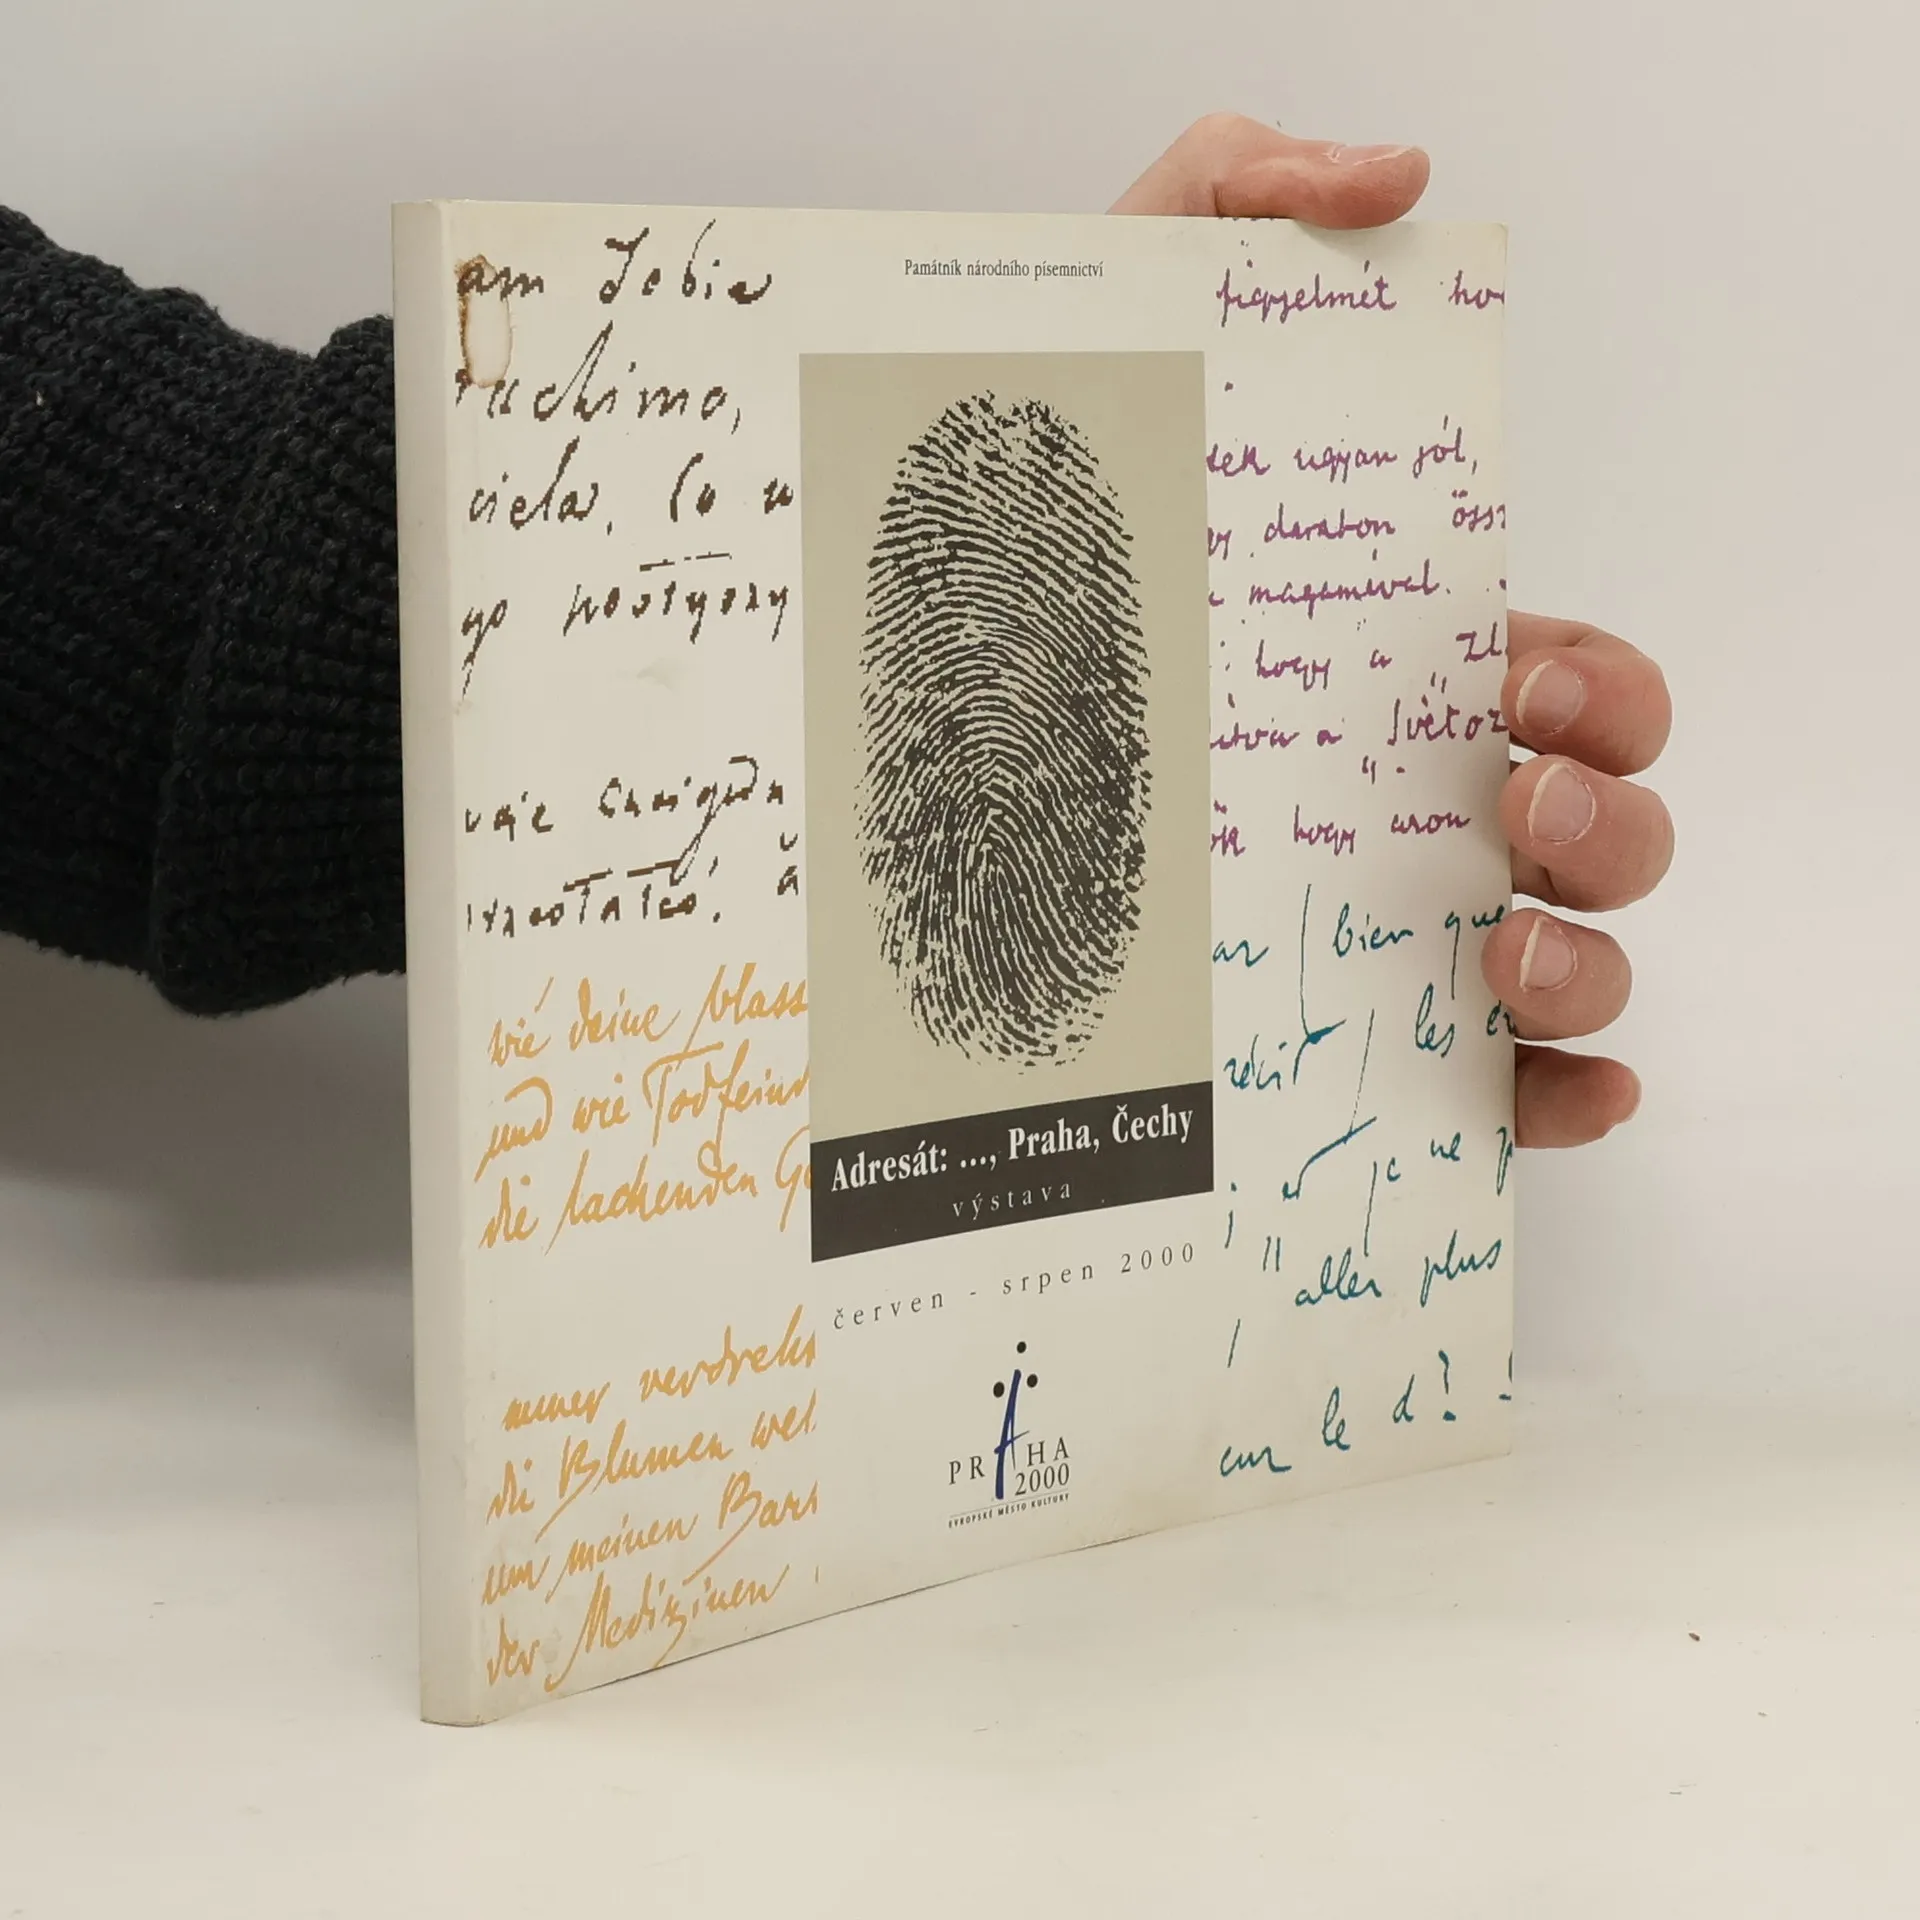 Památník národního písemnictví
Adresát: ..., Praha, Čechy
výstava
červen - srpen 2000
PRAHA
2000
EVROPSKÉ MĚSTO KULTURY
am Tobie
ruchimo,
ciela. Co w
go
wie deine blass
und wie Todfeind
die lachenden
immer
die Blumen
um meinen
der Medizinen
figyelmét ho
ték ugyan jól,
darabon össz
magaméval.
hogy a „Zl
a „Světoz
ők hogy azon
ar bien que
récit les
et je ne p
aller plus
sur le d?